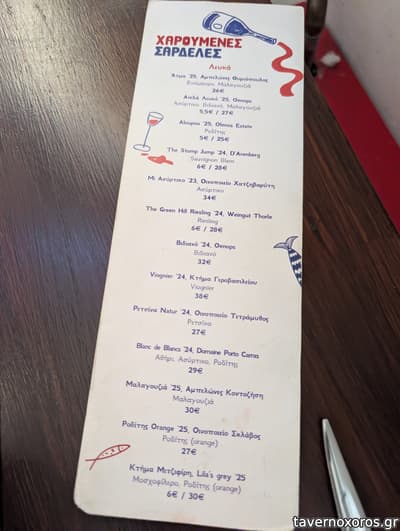 ΧΑΡΟΥΜΕΝΕΣ
ΣΑΡΔΕΛΕΣ
Λευκά
'25, Αμπελώνες
Μαλαγουζιά
26€
Απλά Λευκό '25, Oenops
Ασύρτικο, Βιδιανό, Μαλαγουζιά
5,5€ / 27€
'25, Estate
Ροδίτης
5€ / 25€
The Stump Jump '24, D'Arenberg
Sauvignon Blanc
6€ / 28€
Μι Ασύρτικο '23, Οινοποιείο Χατζηβαρύτη
Ασύρτικο
34€
The Green Hill Riesling '24, Weingut Thörle
Riesling
6€ / 28€
Βιδιανό '24, Oenops
Βιδιανό
32€
Viognier '24, Κτήμα Γεροβασιλείου
Viognier
38€
Ρετσίνα Natur '24, Οινοποιείο Τετράμυθος
Ρετσίνα
27€
Blanc de Blancs '24, Domaine Porto Carras
Αθήρι, Ασύρτικο, Ροδίτης
29€
Μαλαγουζιά '25, Αμπελώνες Κοντοζήση
Μαλαγουζιά
30€
Ροδίτης Orange '25, Οινοποιείο Σκλάβος
Ροδίτης (orange)
27€
Κτήμα Μιτζιφίρη, Lila's grey '25
Μοσχοφίλερο, Ροδίτης (orange)
6€ / 30€
tavernoxoros.gr